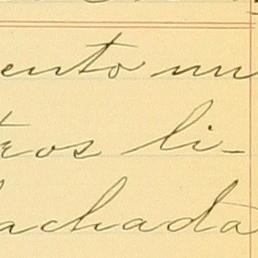 ento un
tros li-
achada